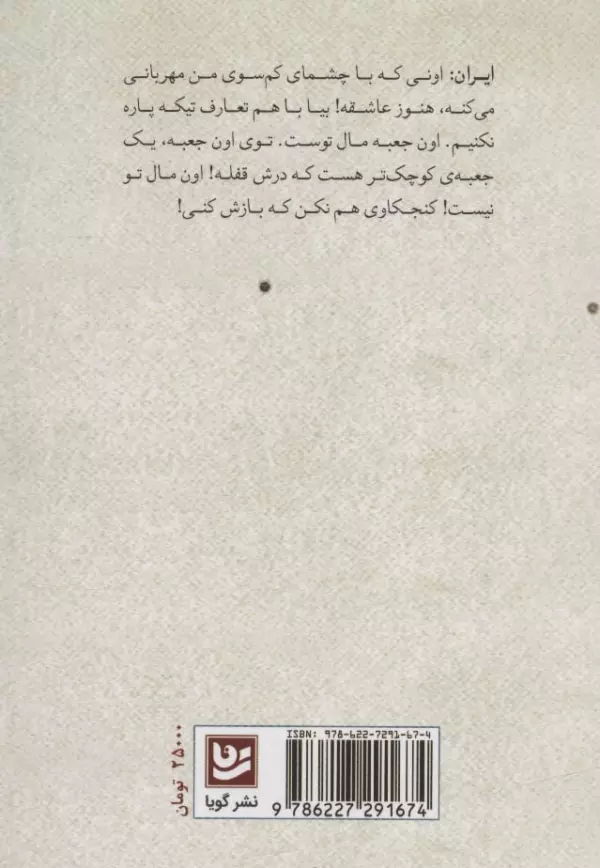 ایران: اونی که با چشمای کم‌سوی من مهربانی
می‌کنه، هنوز عاشقه! بیا با هم تعارف تیکه پاره
نکنیم. اون جعبه مال توست. توی اون جعبه، یک
جعبه‌ی کوچک‌تر هست که درش قفله! اون مال تو
نیست! کنجکاوی هم نکن که بازش کنی!
۲۵۰۰۰ تومان
ISBN: 978-622-7291-67-4
نشر گویا
9 786227 291674